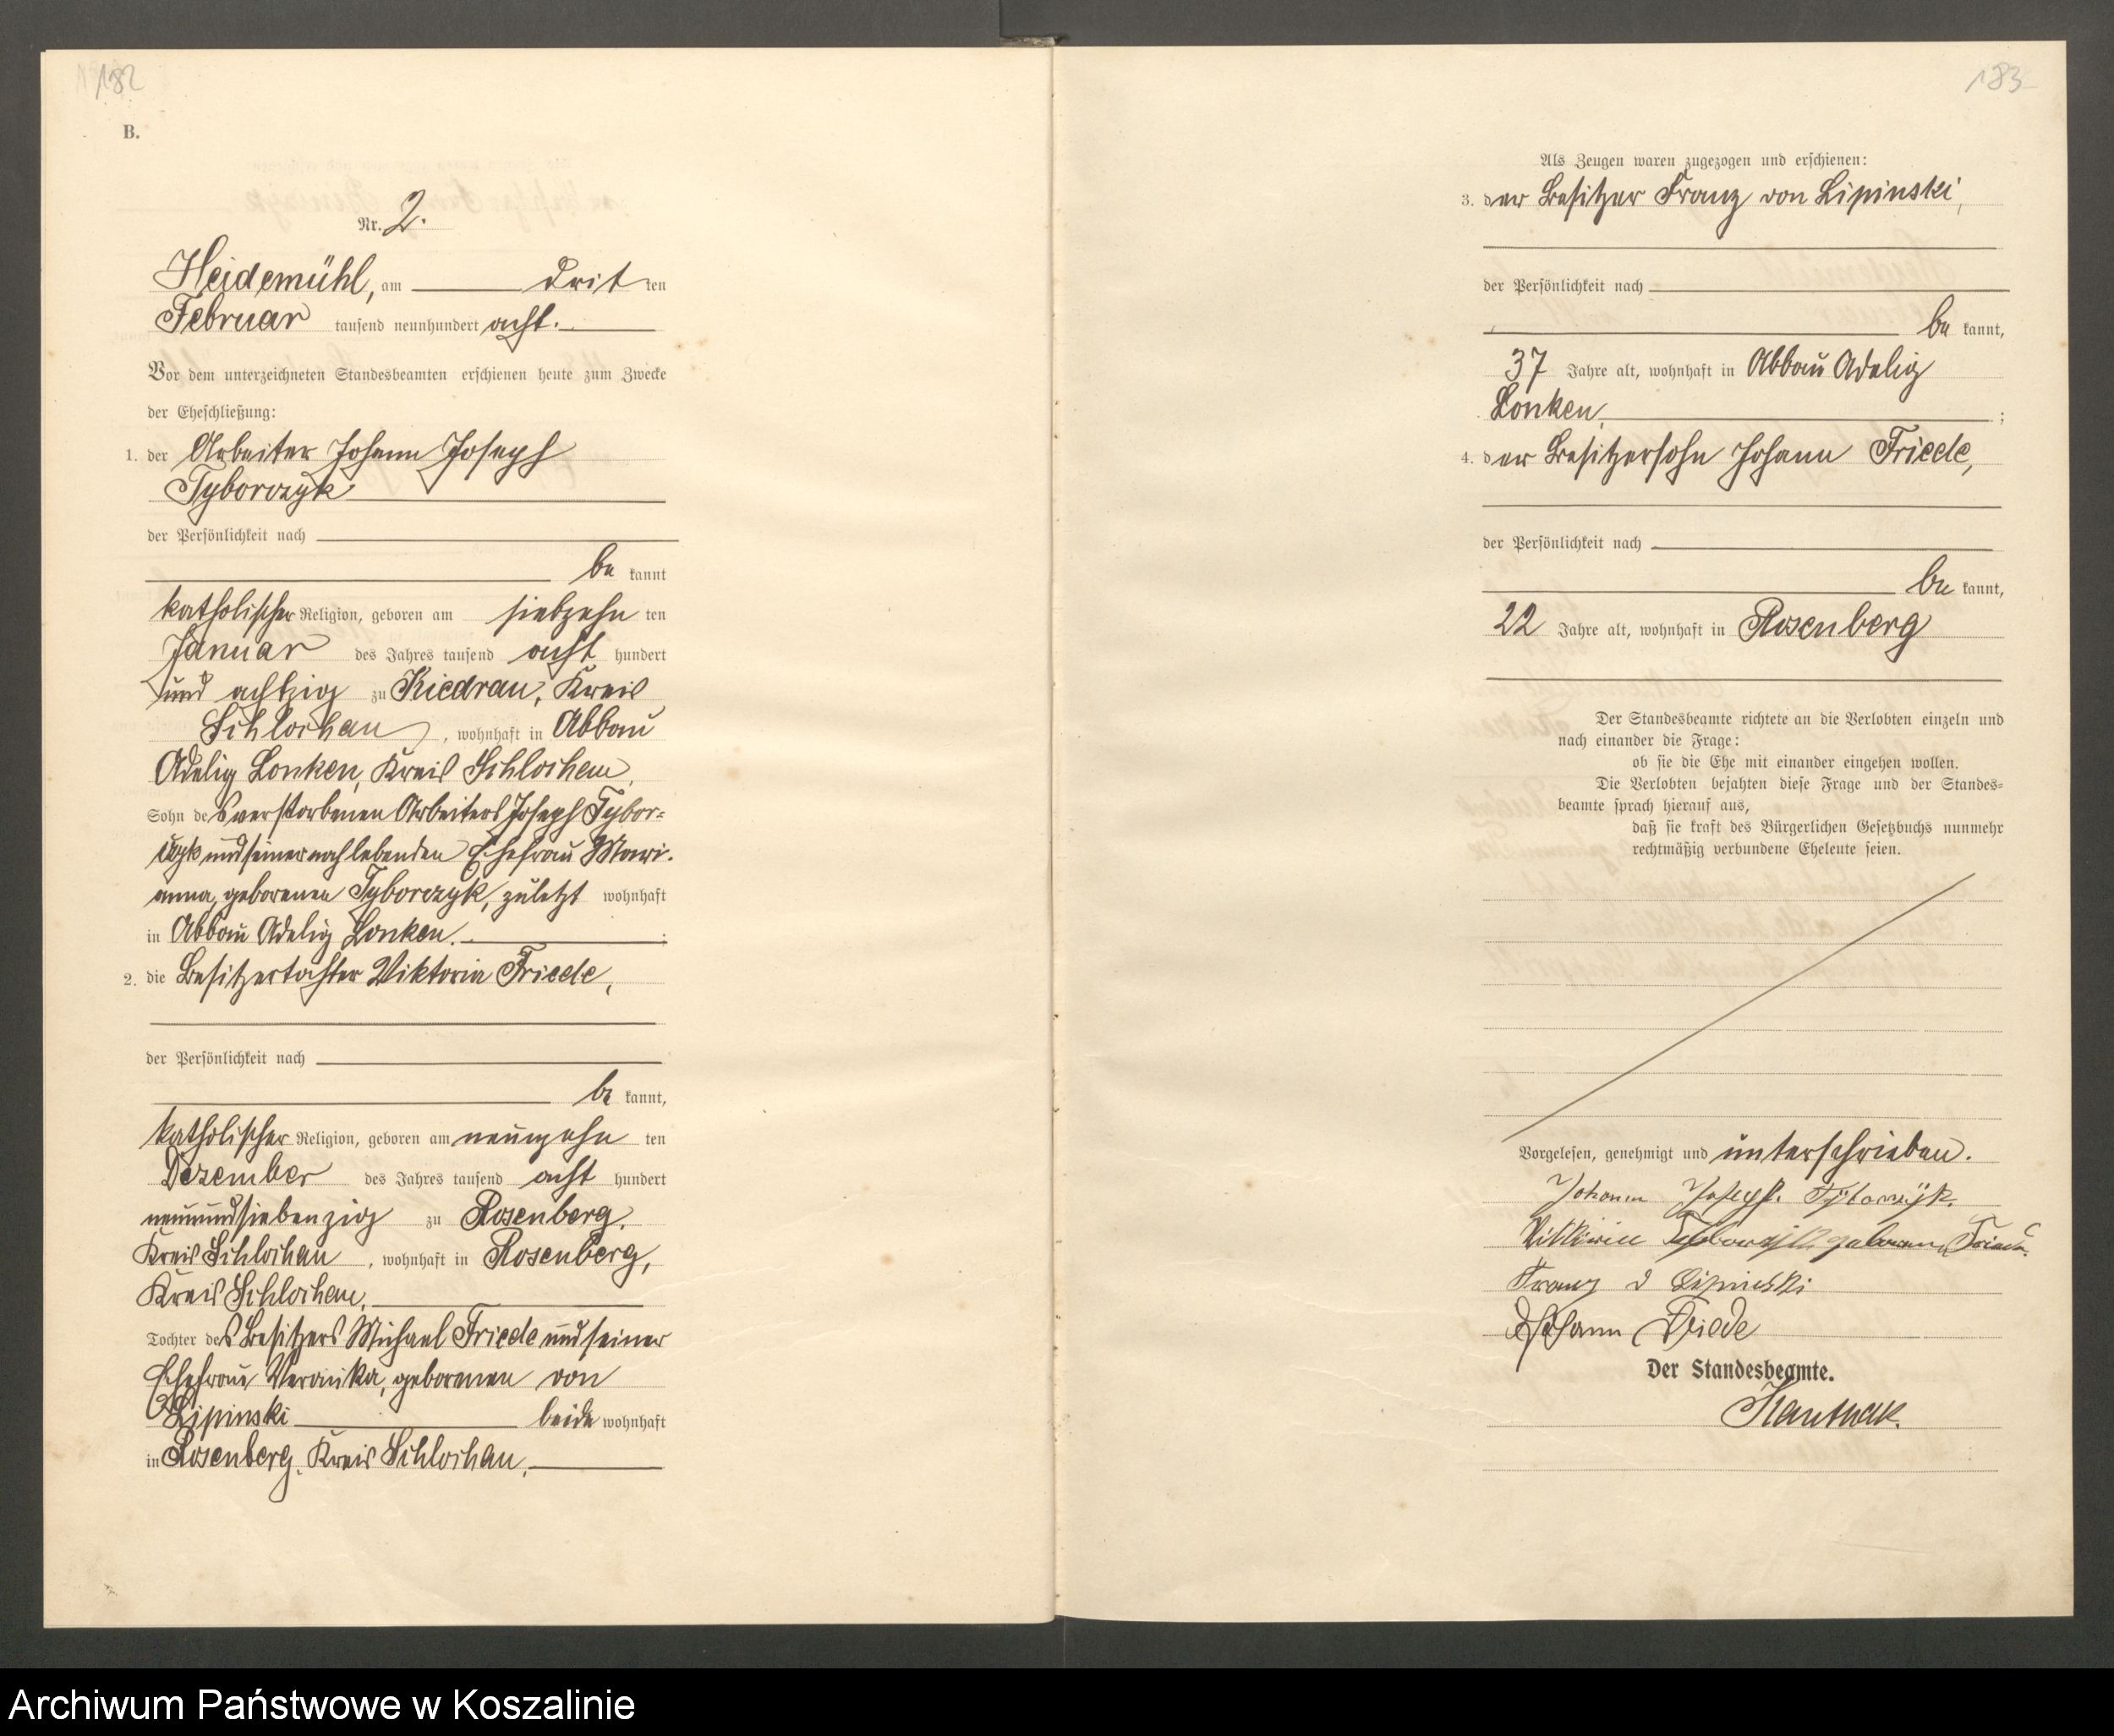 182
B.
Nr. 2.
Heidemühl, am drit ten
Februar tausend neunhundert acht.
Vor dem unterzeichneten Standesbeamten erschienen heute zum Zwecke
der Eheschließung:
1. der Arbeiter Johann Joseph
Tyborczyk
der Persönlichkeit nach
be kannt
katholischer Religion, geboren am siebzehn ten
Januar des Jahres tausend acht hundert
und achtzig zu Kiedrau, Kreis
Schlochau, wohnhaft in Abbau
Adelig Lonken, Kreis Schlochau,
Sohn des verstorbenen Arbeiters Joseph Tybor=
czyk und seiner noch lebenden Ehefrau Mari-
anna, geborenen Tyborczyk, zuletzt wohnhaft
in Abbau Adelig Lonken. ;
2. die Besitzertochter Viktoria Friede,
der Persönlichkeit nach
be kannt,
katholischer Religion, geboren am neunzehn ten
Dezember des Jahres tausend acht hundert
neunundsiebenzig zu Rosenberg,
Kreis Schlochau, wohnhaft in Rosenberg,
Kreis Schlochau,
Tochter des Besitzers Michael Friede und seiner
Ehefrau Veronika, geborenen von
Lipinski beide wohnhaft
in Rosenberg, Kreis Schlochau,
183
Als Zeugen waren zugezogen und erschienen:
3. der Besitzer Franz von Lipinski,
der Persönlichkeit nach
be kannt,
37 Jahre alt, wohnhaft in Abbau Adelig
Lonken, ;
4. der Besitzersohn Johann Friede,
der Persönlichkeit nach
be kannt,
22 Jahre alt, wohnhaft in Rosenberg
Der Standesbeamte richtete an die Verlobten einzeln und
nach einander die Frage:
ob sie die Ehe mit einander eingehen wollen.
Die Verlobten bejahten diese Frage und der Standes=
beamte sprach hierauf aus,
daß sie kraft des Bürgerlichen Gesetzbuchs nunmehr
rechtmäßig verbundene Eheleute seien.
Vorgelesen, genehmigt und unterschrieben.
Johann Joseph Tyborczyk.
Tyborczyk geborene Friede.
Franz v Lipinski
Johann Friede
Der Standesbeamte.
Archiwum Państwowe w Koszalinie